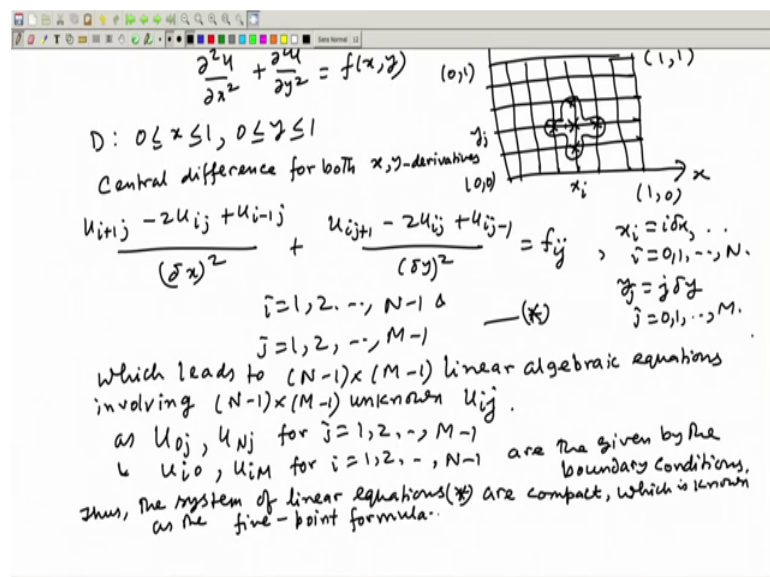 Sans Normal 12
∂²u/∂x² + ∂²u/∂y² = f(x,y)
(0,1)
(1,1)
D: 0≤x≤1, 0≤y≤1
y_j
Central difference for both x,y-derivatives
(0,0)
x_i
(1,0)
x
(u_{i+1j} - 2u_{ij} + u_{i-1j})/(δx)² + (u_{ij+1} - 2u_{ij} + u_{ij-1})/(δy)² = f_{ij} ,
x_i = iδx, ..
i=0,1, --, N.
y_j = jδy
j=0,1, .., M.
i=1,2. --, N-1 &
j=1,2, --, M-1 —(*)
which leads to (N-1)×(M-1) linear algebraic equations
involving (N-1)×(M-1) unknown u_{ij}.
as u_{0j}, u_{Nj} for j=1,2,--, M-1
& u_{i0}, u_{iM} for i=1,2, --, N-1 are the given by the
boundary conditions.
Thus, the system of linear equations(*) are compact, which is known
as the five-point formula..